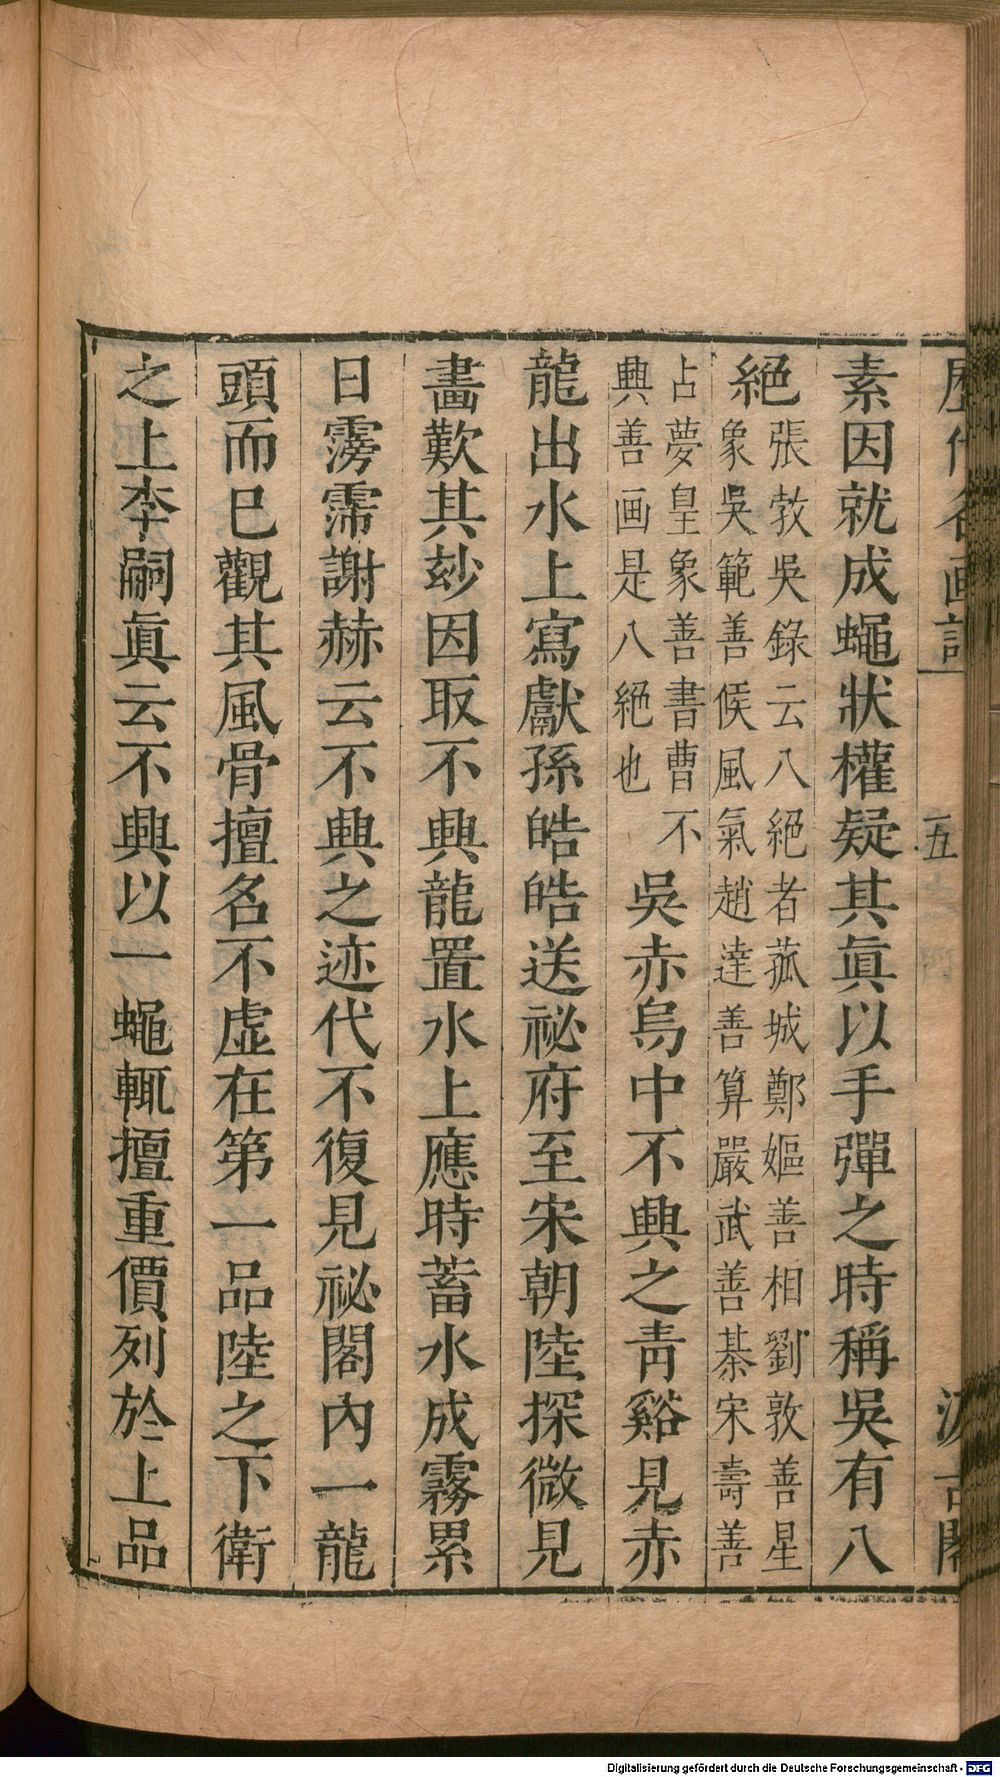 歷代名画記
五
汲古閣
素因就成蠅狀權疑其眞以手彈之時稱吳有八
絕張敦吳錄云八絕者菰城鄭嫗善相劉敦善星
象吳範善候風氣趙達善算嚴武善棊宋壽善
占夢皇象善書曹不
興善画是八絕也
吳赤烏中不興之靑谿見赤
龍出水上寫獻孫皓皓送祕府至宋朝陸探微見
畫歎其玅因取不興龍置水上應時蓄水成霧累
日霶霈謝赫云不興之迹代不復見祕閣內一龍
頭而已觀其風骨擅名不虛在第一品陸之下衛
之上李嗣眞云不興以一蠅輒擅重價列於上品
Digitalisierung gefördert durch die Deutsche Forschungsgemeinschaft - DFG